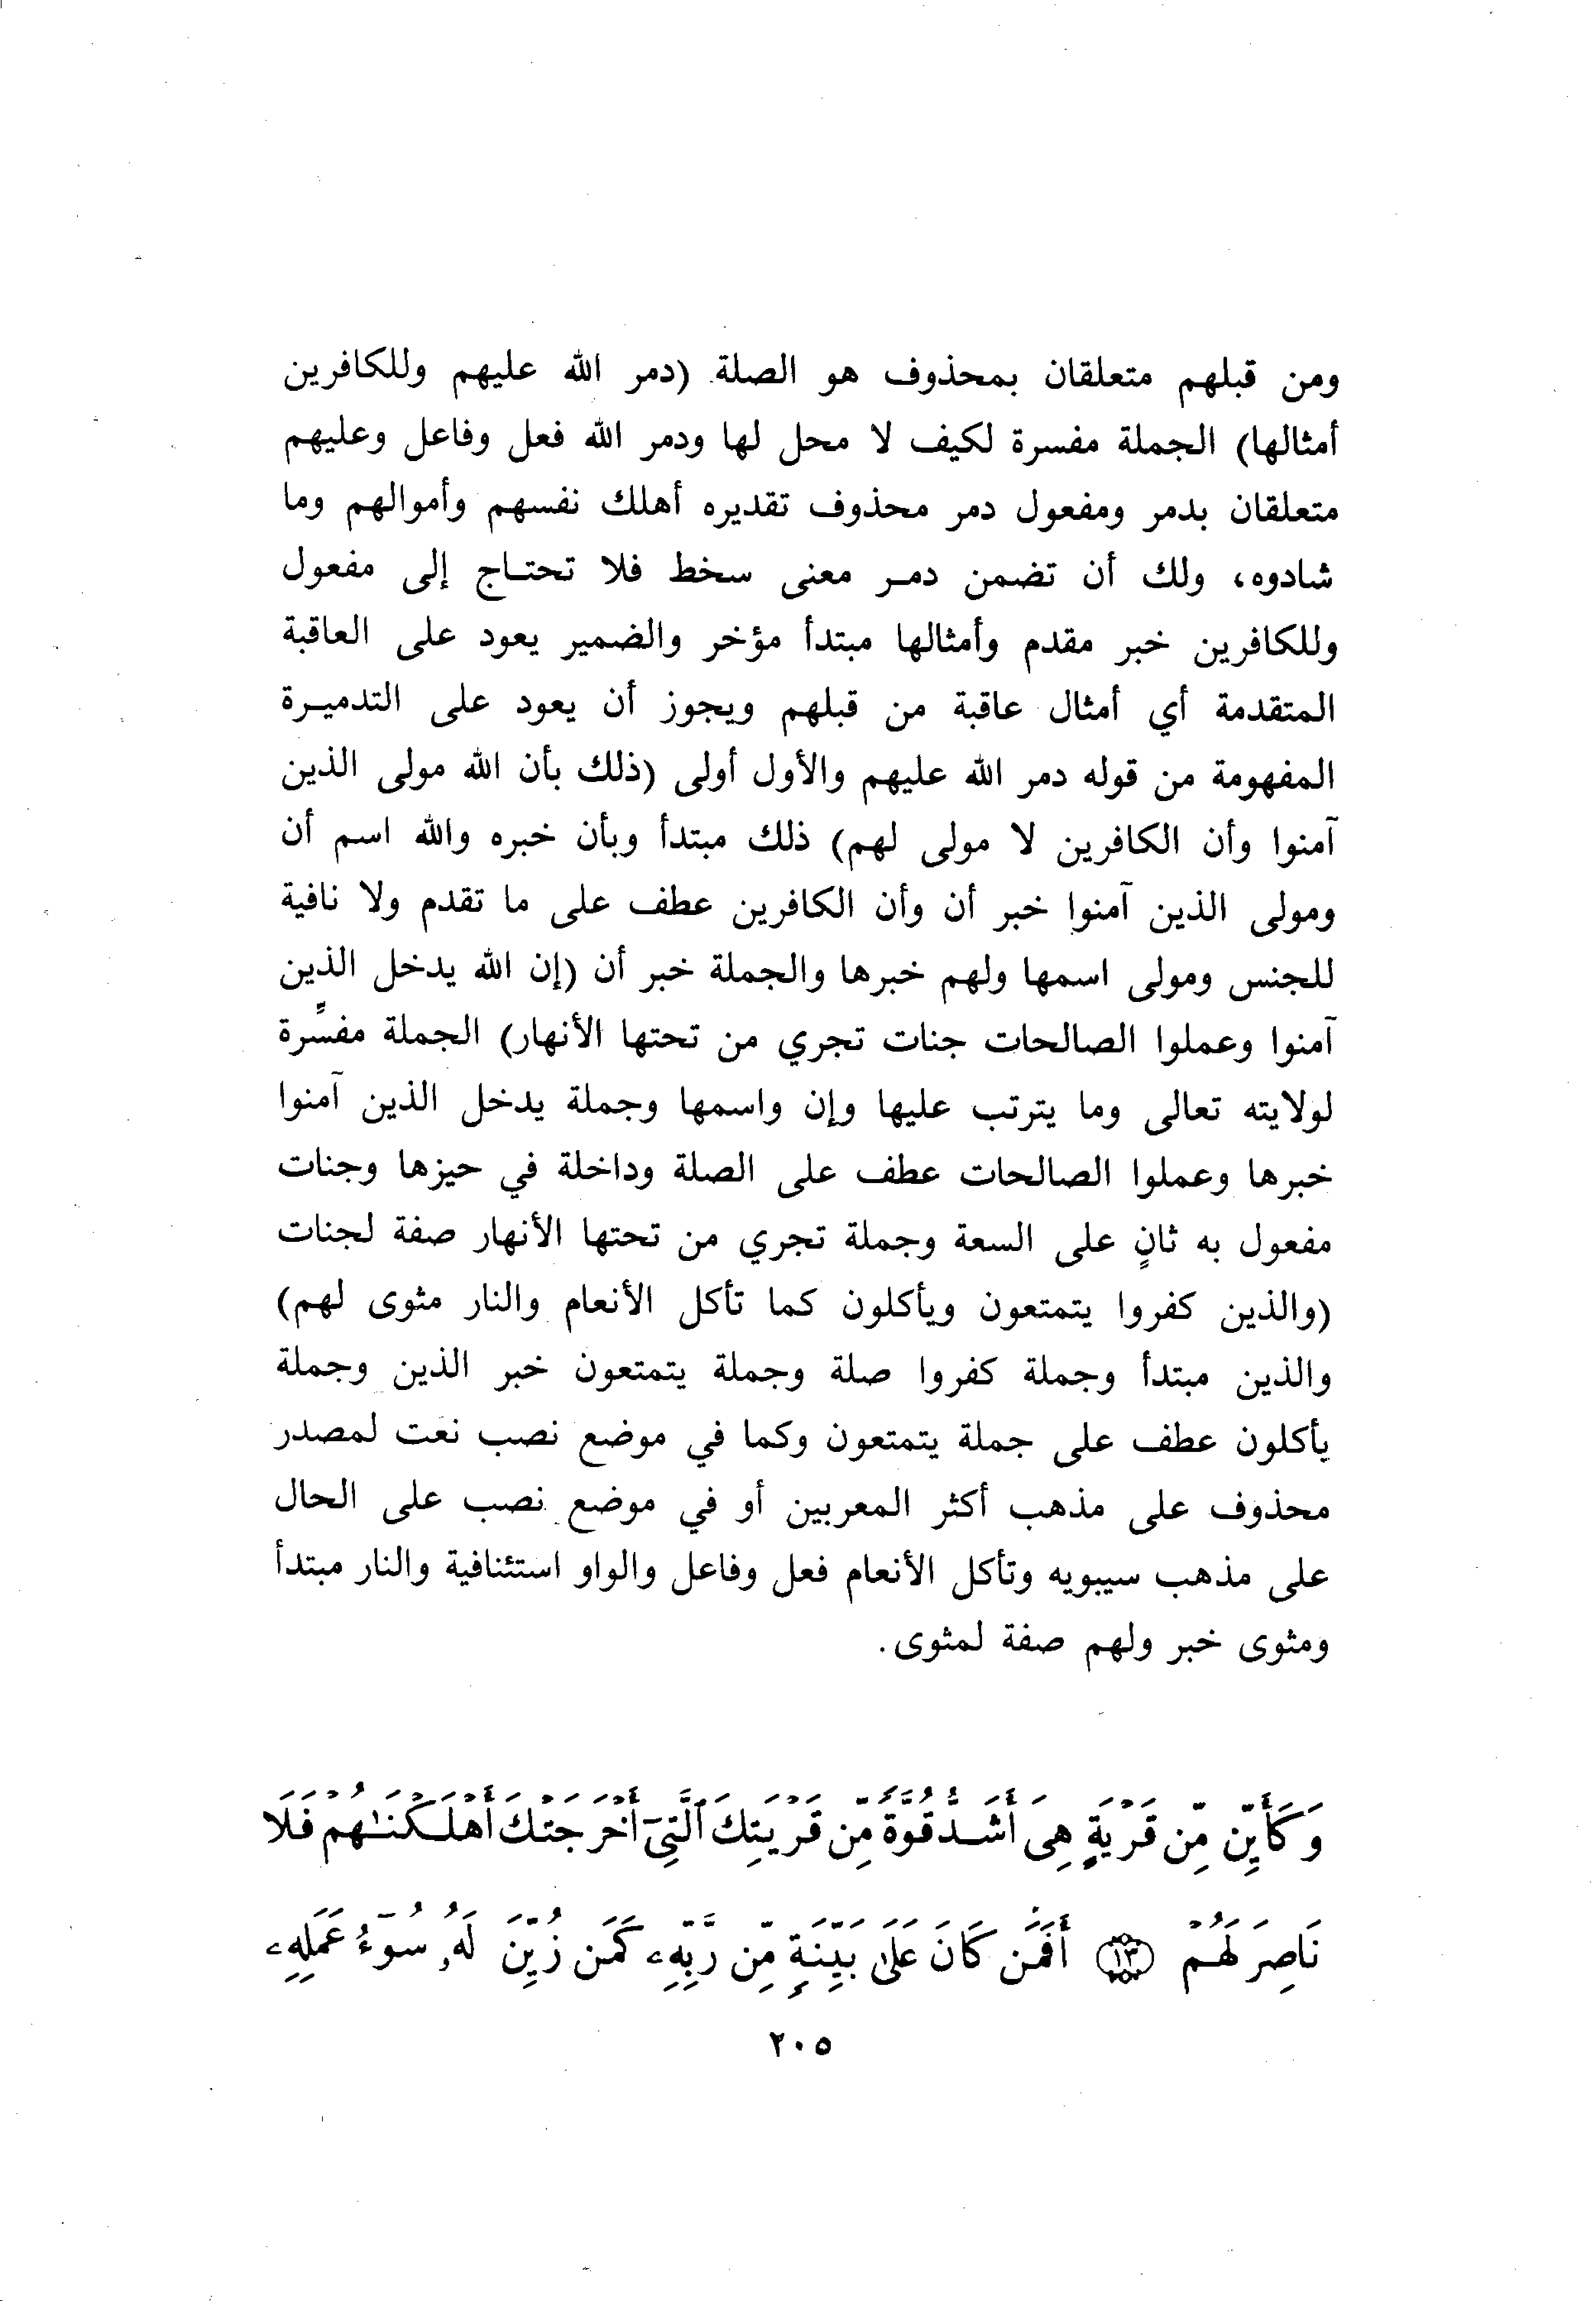 ومن قبلهم متعلقان بمحذوف هو الصلة (دمر الله عليهم وللكافرين
أمثالها) الجملة مفسرة لكيف لا محل لها ودمر الله فعل وفاعل وعليهم
متعلقان بدمر ومفعول دمر محذوف تقديره أهلك نفسهم وأموالهم وما
شادوه، ولك أن تضمن دمـر معنى سخط فلا تحتـاج إلى مفعول
وللكافرين خبر مقدم وأمثالها مبتدأ مؤخر والضمير يعود على العاقبة
المتقدمة أي أمثال عاقبة من قبلهم ويجوز أن يعود على التدميـرة
المفهومة من قوله دمر الله عليهم والأول أولى (ذلك بأن الله مولى الذين
آمنوا وأن الكافرين لا مولى لهم) ذلك مبتدأ وبأن خبره والله اسم أن
ومولى الذين آمنوا خبر أن وأن الكافرين عطف على ما تقدم ولا نافية
للجنس ومولى اسمها ولهم خبرها والجملة خبر أن (إن الله يدخل الذين
آمنوا وعملوا الصالحات جنات تجري من تحتها الأنهار) الجملة مفسِّرة
لولايته تعالى وما يترتب عليها وإن واسمها وجملة يدخل الذين آمنوا
خبرها وعملوا الصالحات عطف على الصلة وداخلة في حيزها وجنات
مفعول به ثانٍ على السعة وجملة تجري من تحتها الأنهار صفة لجنات
(والذين كفروا يتمتعون ويأكلون كما تأكل الأنعام والنار مثوى لهم)
والذين مبتدأ وجملة كفروا صلة وجملة يتمتعون خبر الذين وجملة
يأكلون عطف على جملة يتمتعون وكما في موضع نصب نعت لمصدر
محذوف على مذهب أكثر المعربين أو في موضع نصب على الحال
على مذهب سيبويه وتأكل الأنعام فعل وفاعل والواو استئنافية والنار مبتدأ
ومثوى خبر ولهم صفة لمثوى.
وَكَأَيِّن مِّن قَرْيَةٍ هِىَ أَشَدُّ قُوَّةً مِّن قَرْيَتِكَ ٱلَّتِىٓ أَخْرَجَتْكَ أَهْلَكْنَـٰهُمْ فَلَا
نَاصِرَ لَهُمْ ١٣ أَفَمَن كَانَ عَلَىٰ بَيِّنَةٍ مِّن رَّبِّهِۦ كَمَن زُيِّنَ لَهُۥ سُوٓءُ عَمَلِهِۦ
٢٠٥